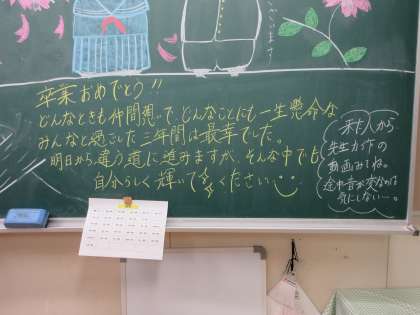 卒業おめでとう!!
どんなときも仲間想いで、どんなことにも一生懸命な
みんなと過ごした三年間は最幸でした。
明日から違う道に進みますが、そんな中でも
自分らしく輝いてください
から
先生力作の
動画みてね。
途中音が変なのは
気にしないで…。